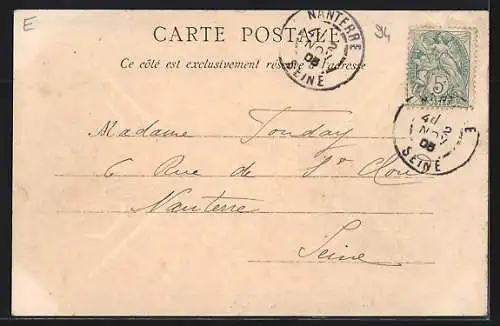 E
CARTE POSTALE
94
Ce côté est exclusivement réservé à l'adresse
NANTERRE
NOV
05
SEINE
5
NOV
05
SEINE
Madame Touday
6 Rue de St Clou
Nanterre
Seine